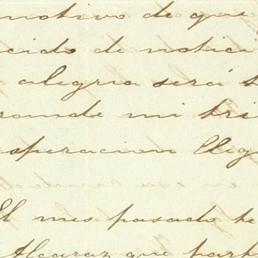 motivo de que
cido de notici
alegria será t
grande mi tri
speracion lleg
El mes pasado te
Alcaraz que part